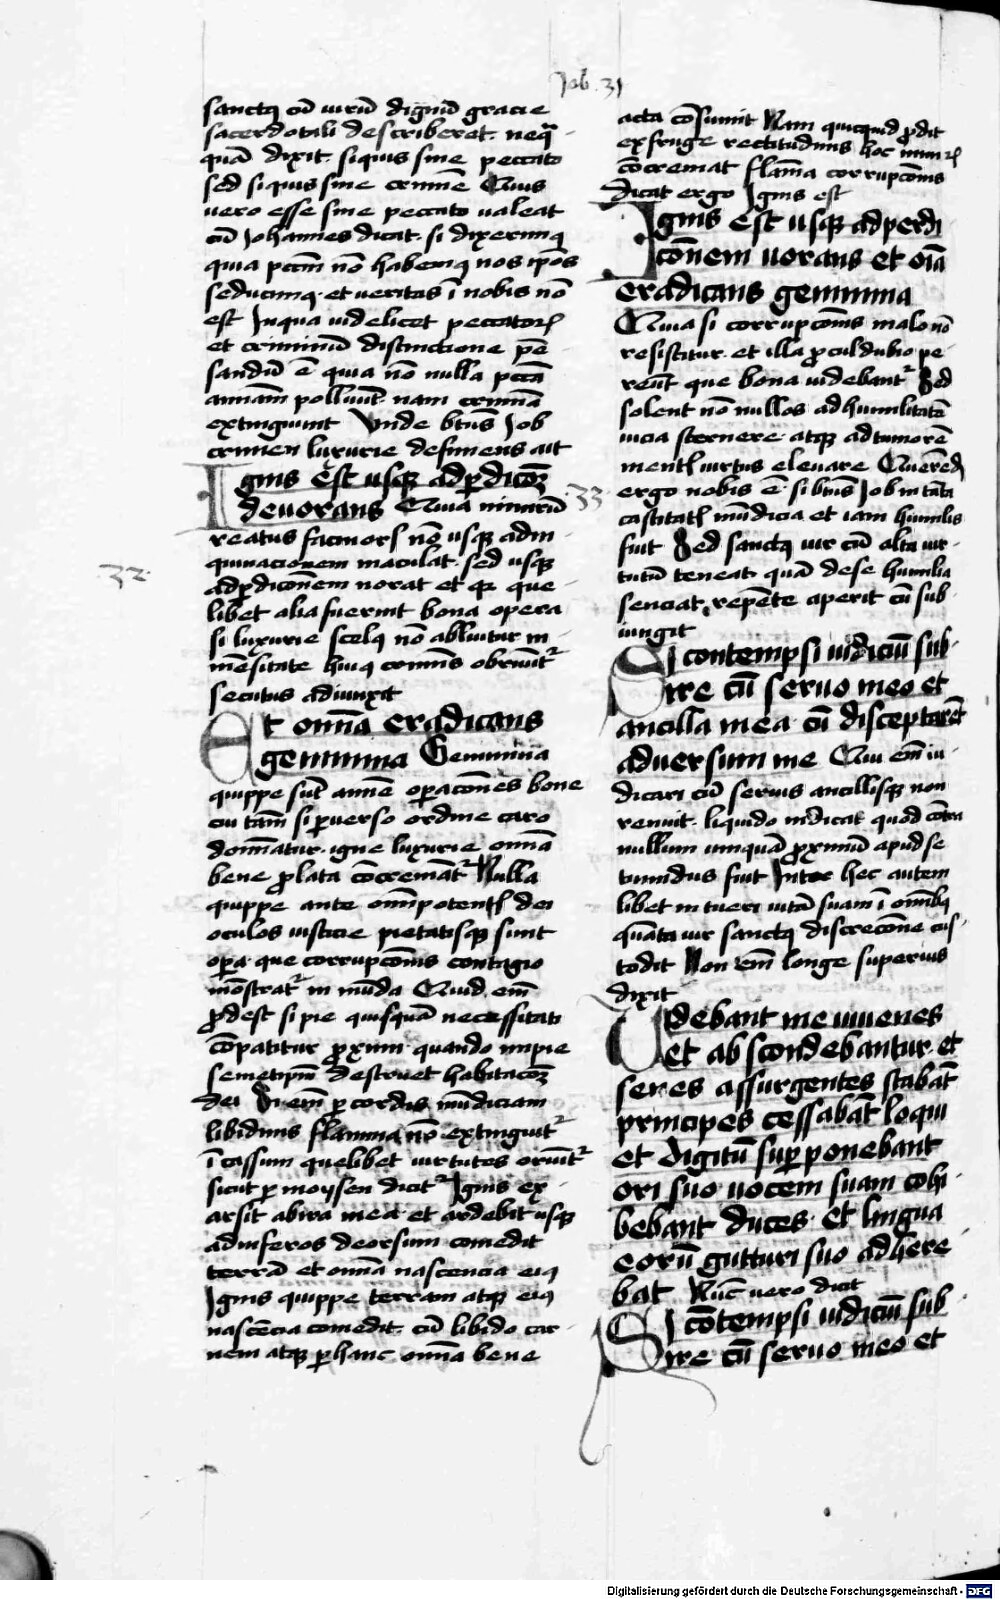 Job . 31
sanctꝯ cū virū dignū gracie
sacerdotali describeret . neq̄
quā dixit . siquis sine peccato
sed siquis sine crimīe Quis
vero esse sine peccato valeat
cū Johannes dicat . si dixerimꝯ
quia pctm̄ nō habemꝯ nos ip̄os
seducimꝯ . et veritas ī nobis nō
est In qua videlicet peccatorꝝ
et criminū distinctione pē
sandū ē quia nō nulla pctā
animam̄ polluūt . nam crimīa
extinguunt Unde btūs Job
crimen luxurie definiens ait
Ignis est usqꝫ ad ꝑdicōꝫ
devorans Quia nimirū
reatus facinorꝭ nō usqꝫ ad in
quinacionem maculat . sed usqꝫ
ad ꝑdicōnem vorat et qꝛ que
libet alia fuerint bona opera
si luxurie scelꝯ nō abluitur in
mēsitate huiꝯ crimīs obruūtr
secutus adiunxit
Et omīa eradicans
genimina Genimina
quippe sūt anime oꝑacōnes bone
cui tam̄ si ꝑverso ordine caro
domīatur . igne luxurie omīa
bene ꝓlata cōcremātr Nulla
quippe ante omīpotentꝭ dei
oculos iusticie pietatisqꝫ sunt
oꝑa que corrupcōnis contagio
mōstratr in mūda Quid em̄
ꝓdest si pie quisquā necessitati
cōpatitur ꝓximi . quando impie
semetip̄m destruet habitacōꝫ
dei Si em̄ ꝑ cordis mūdiciam
libidinis flamma nō extinguitr
ī cassum quelibet virtutes oriūtr
sicut ꝑ moysen dicitr Ignis ex
arsit ab ira mea et ardebit usqꝫ
ad inferos deorsum . comedit
terrā et omīa nascencia eiꝯ
Ignis quippe terram atqꝫ eiꝯ
nascēcia comedit . cū libido car
nem atqꝫ ꝑ hanc omīa bene
32
33
acta cōsumit Nam quicquid ꝓdit
ex fruge rectitudinis hoc
cōcremat flam̄a corrupcōnis
dicat ergo Ignis est
Ignis est usqꝫ ad perdi
cōnem vorans et oīa
eradicans genimina
Quia si corrupcōnis malo nō
resistitur . et illa ꝓculdubio pe
reūt que bona videbantr Sed
solent nō nullos ad humilitatē
vicia sternere . atqꝫ ad tumorē
mentꝭ virtus elevare Querēdꝫ
ergo nobis ē . si btūs Job in tāta
castitatꝭ mūdicia et iam humilis
fuit Sed sanctꝯ vir cū alta vir
tutū teneat . quā de se humilia
senciat . repēte aperit cū sub
iungit
Si contempsi iudiciū sub
ire cū servo meo et
ancilla mea cū disceptarēt
adversum me Qui em̄ iu
dicari cū servis ancillisqꝫ non
renuit . liquido indicat quod cōtra
nullum umquā ꝓximū apud se
tumidus fuit Inter hec autem
libet in tueri vitā suam ī omībꝯ
quāta vir sanctꝯ discrecōne cus
todit Non em̄ longe superius
dixit
Videbant me iuvenes
et abscondebantur . et
senes assurgentes stabāt
principes cessabāt loqui
et digitū suꝑponebant
ori suo vocem suam cohi
bebant duces . et lingua
eorū gutturi suo adhere
bat Nūc vero dicit
Si cōtempsi iudiciū sub
ire cū servo meo et
Digitalisierung gefördert durch die Deutsche Forschungsgemeinschaft - DFG